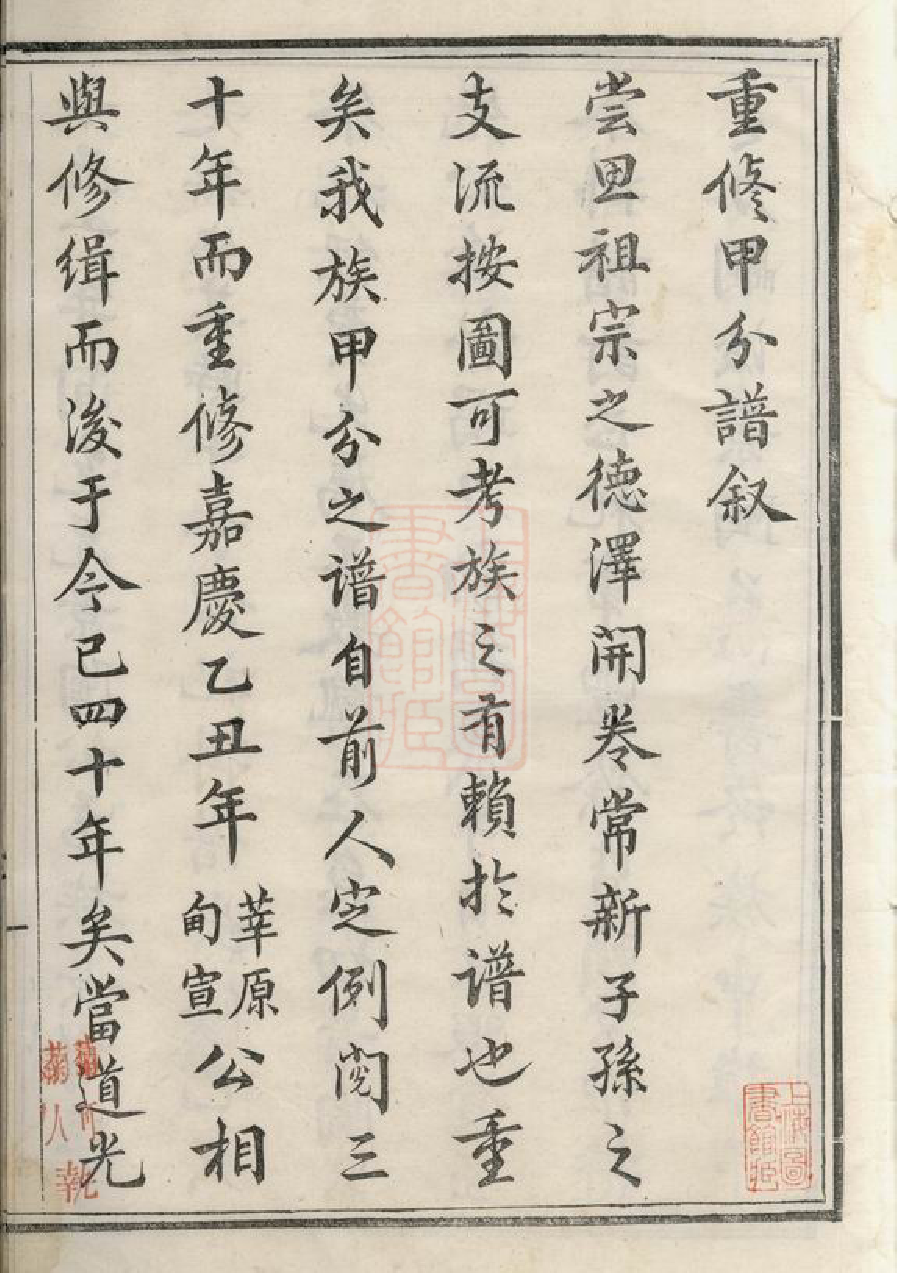 重修甲分譜叙
尝思祖宗之德澤開卷常新子孫之
支流按圖可考族之有賴於譜也重
矣我族甲分之譜自前人定例閱三
十年而重修嘉慶乙丑年莘原甸宣公相
與修缉而後于今已四十年矣當道光
上海圖書館
上海圖書館